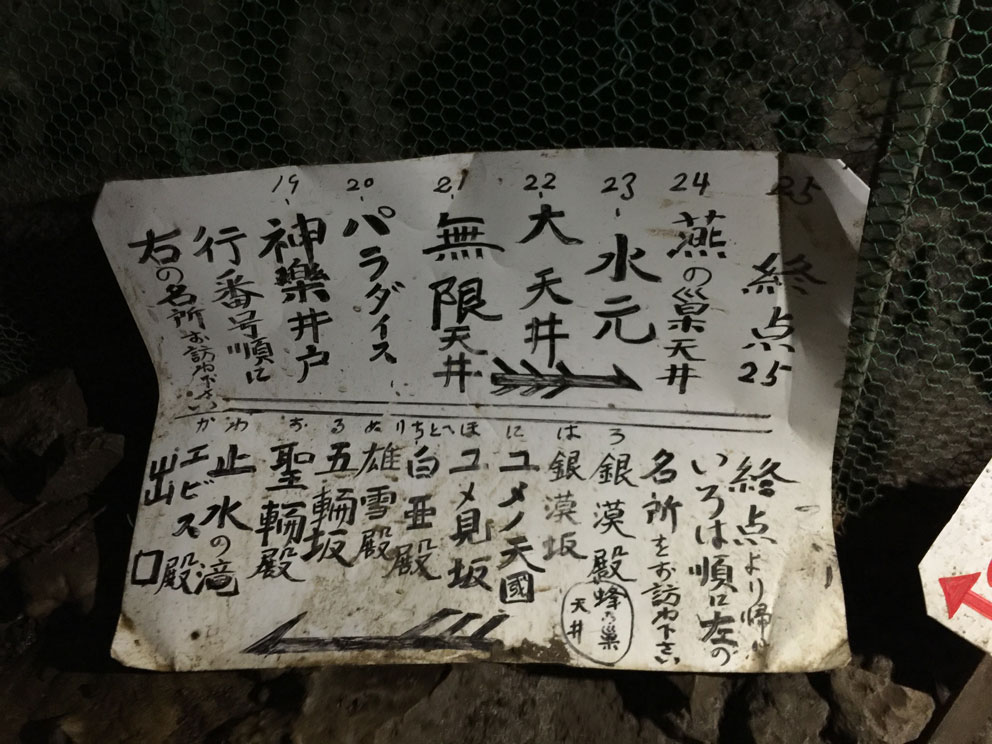 25 終点 25
24 燕の巣天井
23 水元
22 大天井
21 無限天井
20 パラダイス
19 神樂井戸
行番号順に
右の名所お訪ね下さい
終点より帰り
いろは順に左の
名所をお訪ね下さい
ろ 銀漠殿
蜂の巣
天井
は 銀漠坂
に ユメノ天國
ほ ユメ見坂
へとちり 白亜殿
ぬ 雄雪殿
る 五輪坂
お 聖輪殿
わ 止水の滝
か エビス殿
出口